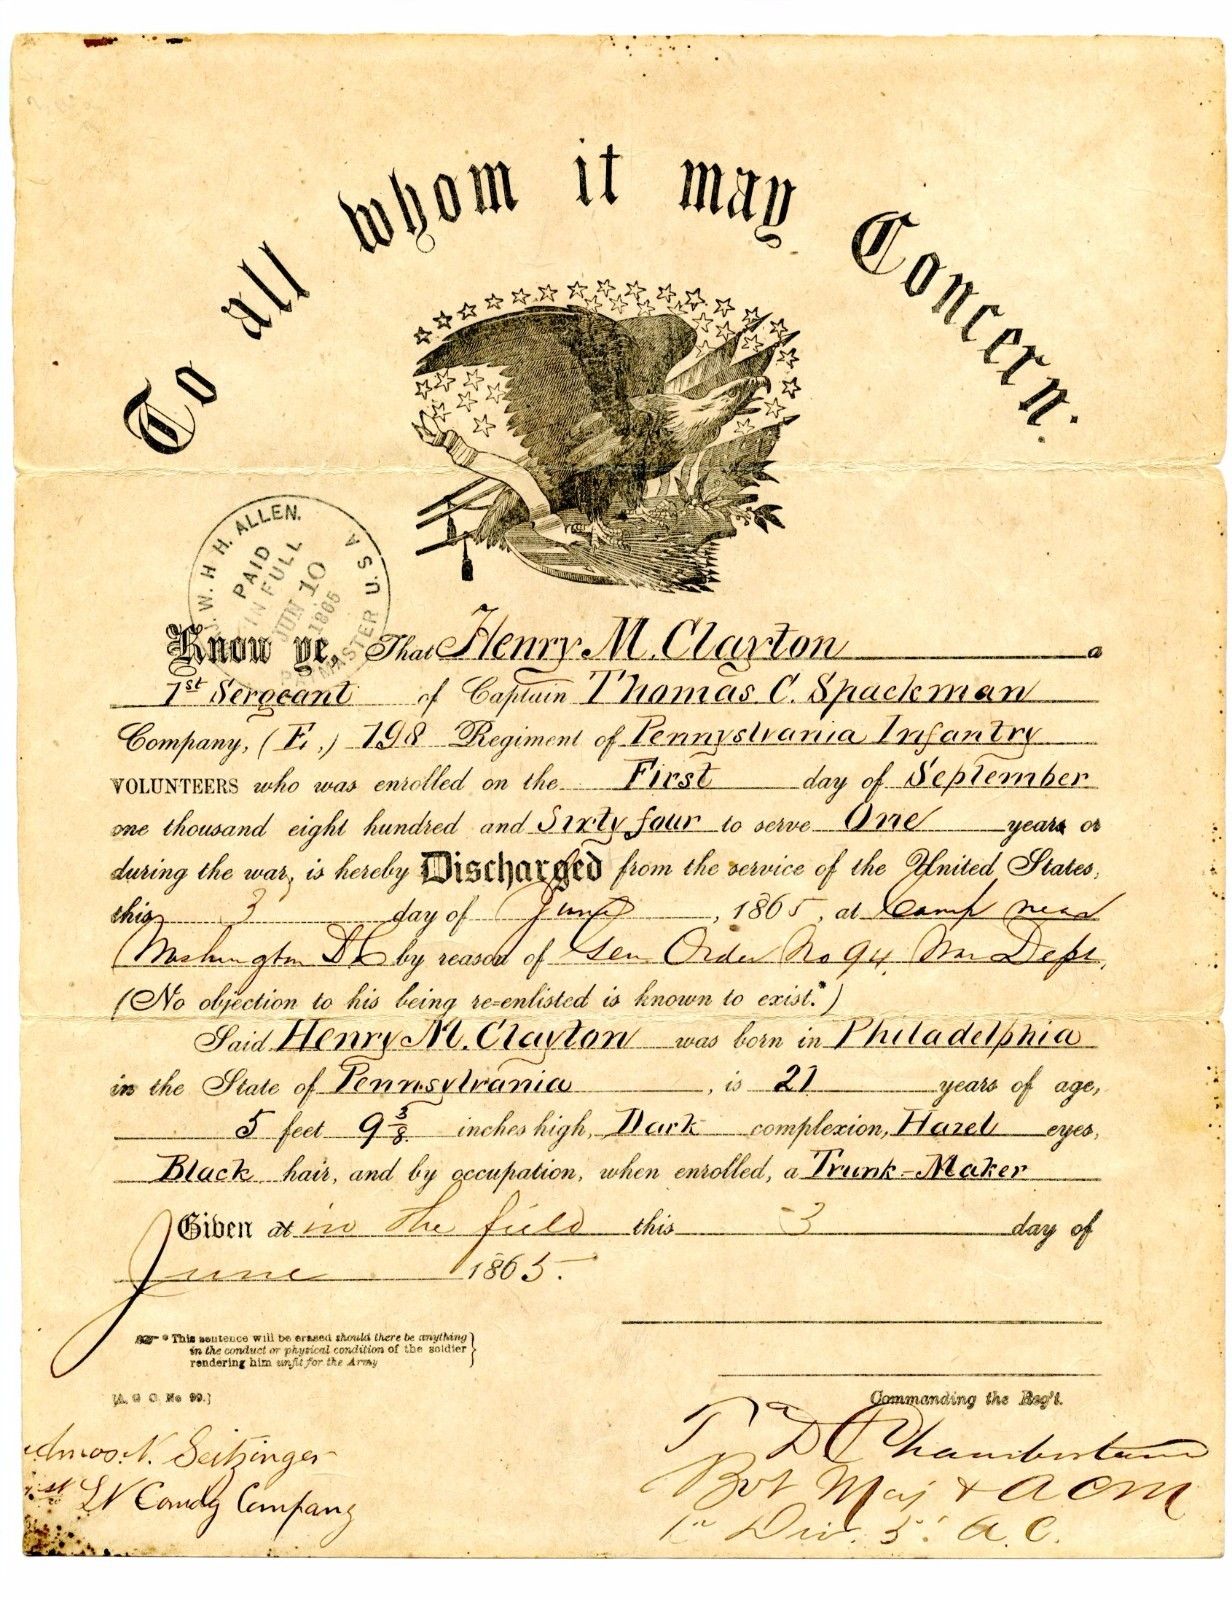 To all whom it may Concern.
W. H. H. ALLEN.
PAID
IN FULL
JUN 10
1865
MASTER U.S.A
Know ye, That Henry M. Clayton a
1st Sergeant of Captain Thomas C. Spackman
Company, (E,) 198 Regiment of Pennyslvania Infantry
VOLUNTEERS who was enrolled on the First day of September
one thousand eight hundred and Sixty four to serve One years or
during the war, is hereby Discharged from the service of the United States,
this 3 day of June, 1865, at Camp near
Washington D.C by reason of Gen Order No 94, War Dept,
(No objection to his being re=enlisted is known to exist.*)
Said Henry M. Clayton was born in Philadelphia
in the State of Pennsylvania, is 21 years of age,
5 feet 9 3/8 inches high, Dark complexion, Hazel eyes,
Black hair, and by occupation, when enrolled, a Trunk-Maker
Given at in the field this 3 day of
June 1865.
* This sentence will be erased should there be anything
in the conduct or physical condition of the soldier
rendering him unfit for the Army
[A. G. O. No 99.]
Commanding the Reg't.
Amos. N. Seitzinger
1st LN Comdg Company
D Chamberlain
Bvt Maj & A C M
1st Div. 5" A. C.